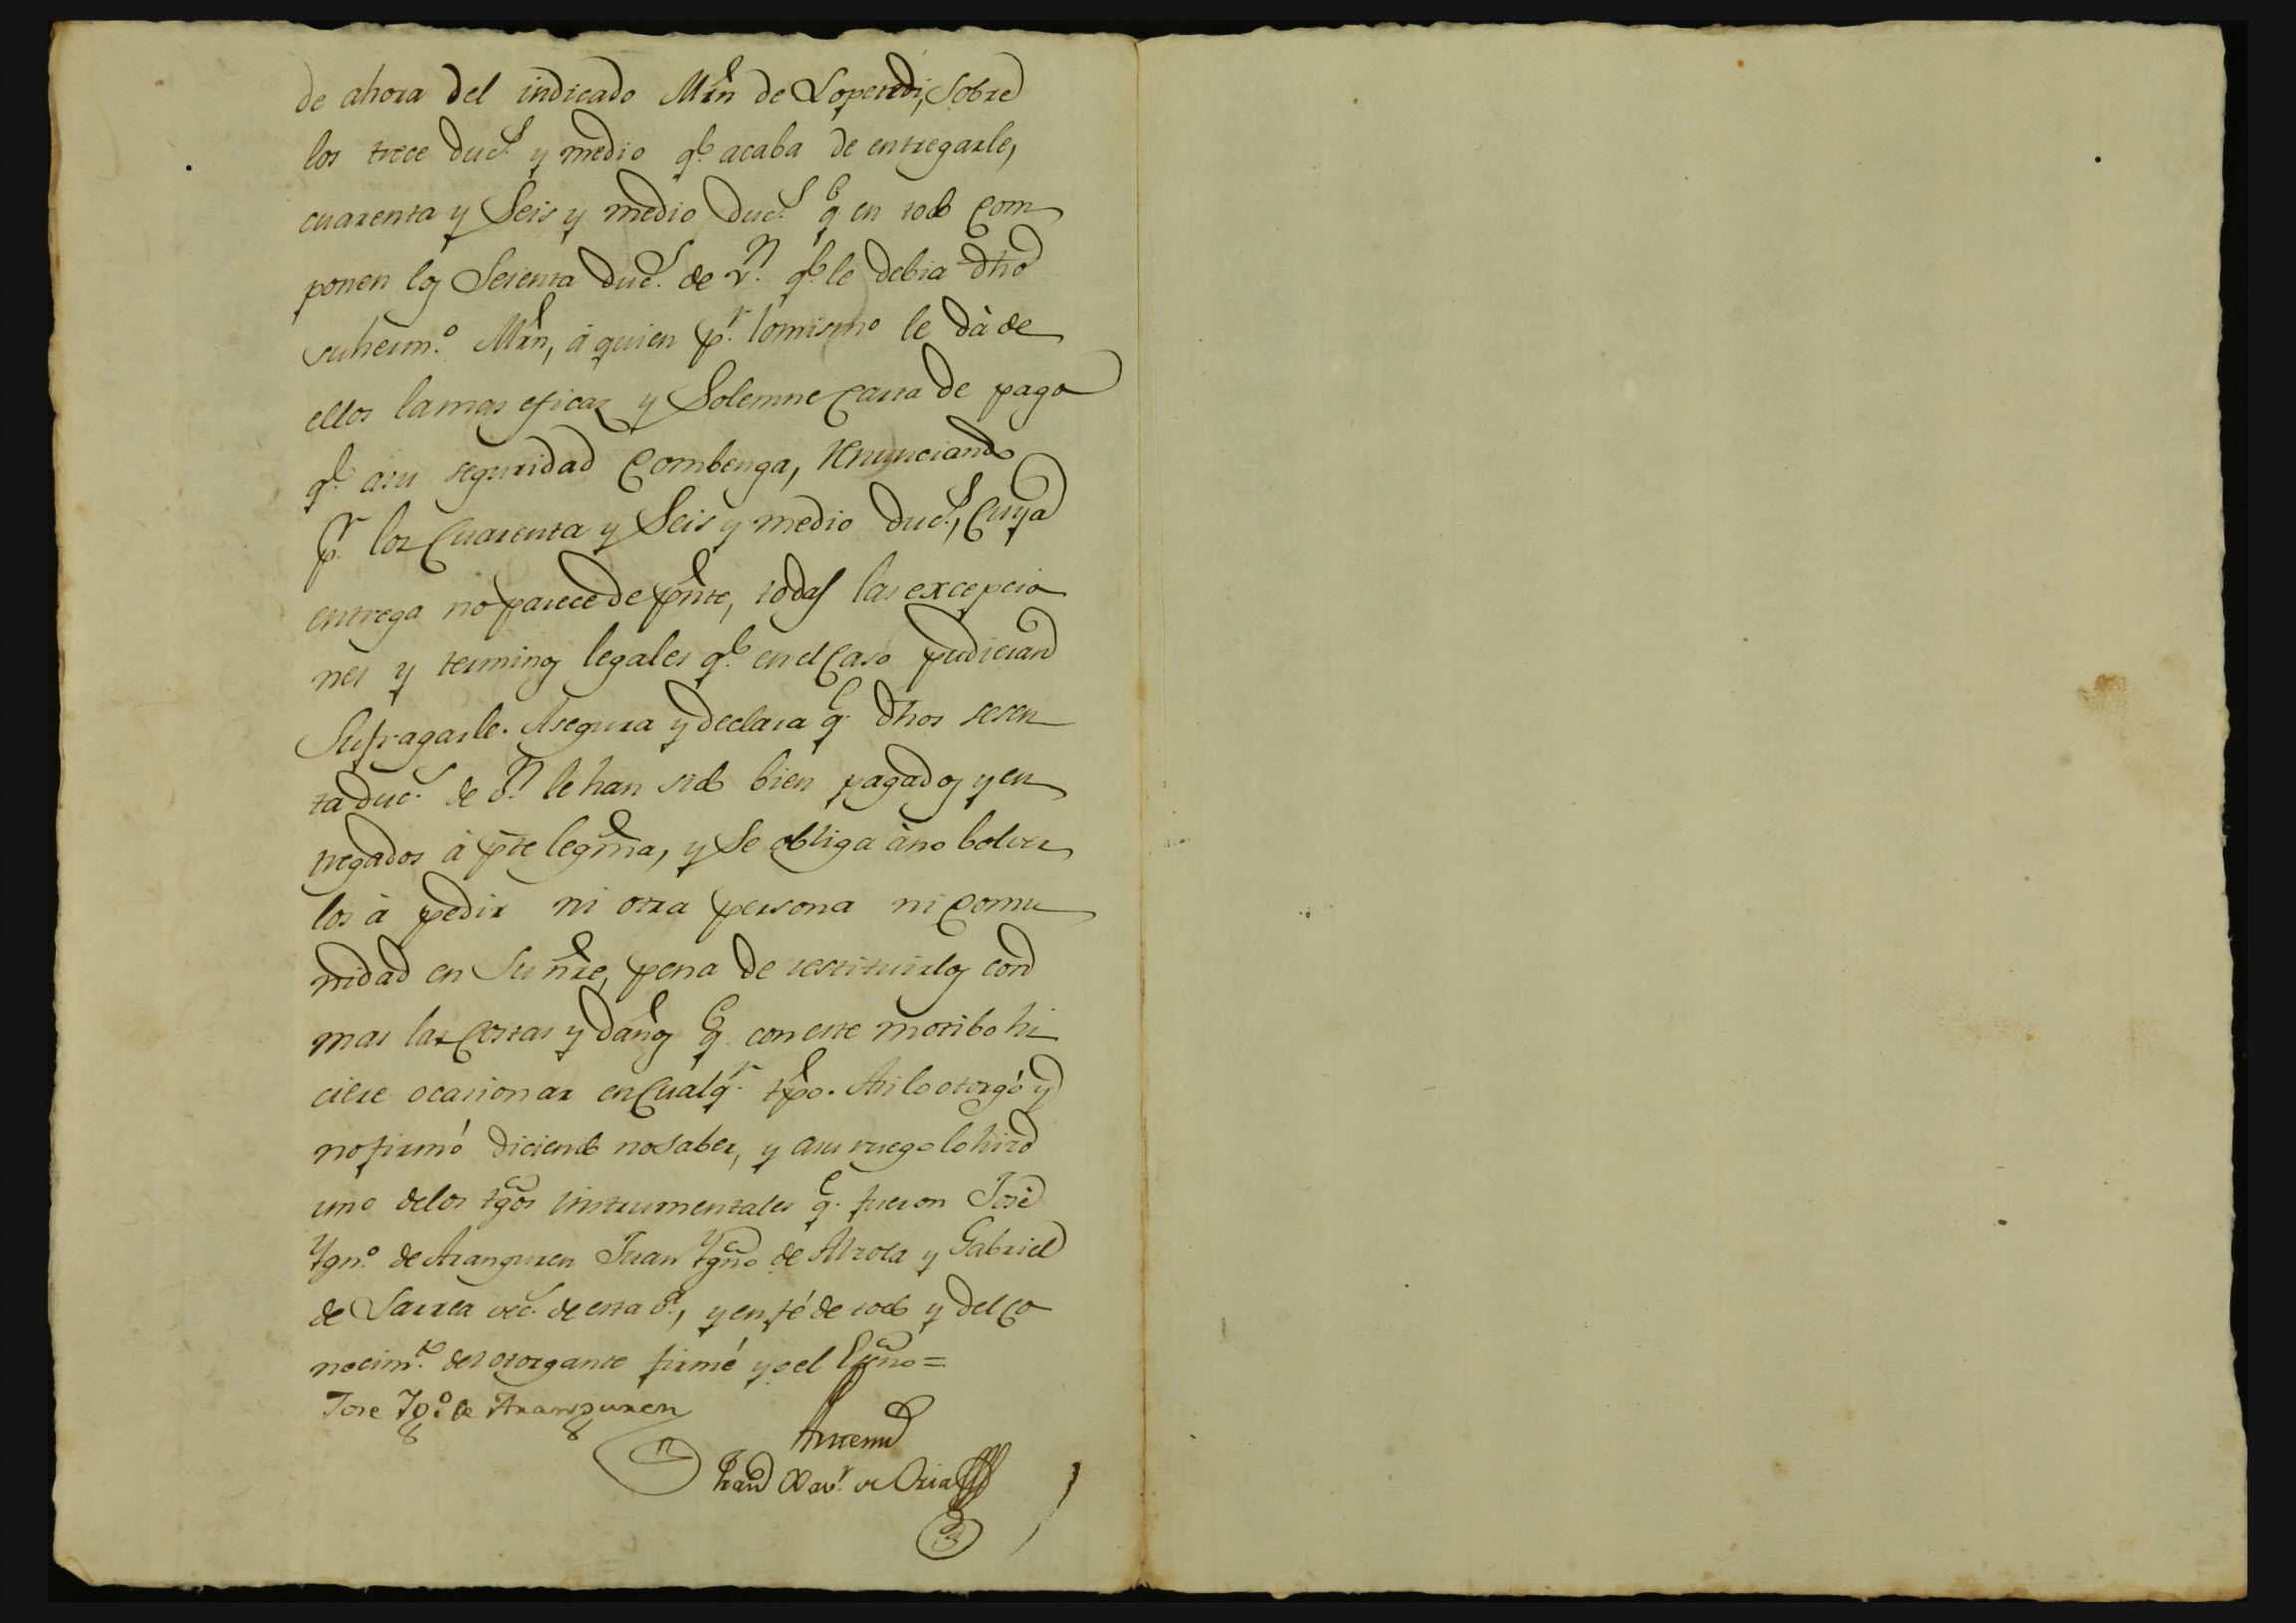 de ahora del indicado Mrn de Loperedi, Sobre
los trece duc.s y medio q.e acaba de entregarle,
cuarenta y Seis y medio duc.s q.e en todo com
ponen los Sesenta duc.s de v.n q.e le debia dho
su herm.o Mrn, á quien p.r lo mismo le dà de
ellos la mas eficaz y Solemne Carta de pago
q.e a su seguridad Combenga, renunciando
p.r los Cuarenta y Seis y medio duc.s, Cuya
entrega no parece de pnte, todas las excepcio
nes y terminos legales q.e en el Caso pudieran
Sufragarle. Asegura y declara q.e dhos sesen
ta duc.s de v.n le han sido bien pagados y en
tregados á pte legma, y Se obliga à no bolver
los à pedir ni otra persona ni Comu
nidad en Su nre, pena de restituirlos con
mas las Costas y daños q.e con este motibo hi
ciere ocasionar en Cualq.r tpo. Asi lo otorgó y
no firmó diciendo no Saber, y a su ruego lo hizo
uno de los tgos instrumentales q.e fueron José
Ygn.o de Aranguren Juan Ygno de Alzola y Gabriel
de Larrea vec.s de esta v.a, y en fé de todo y del Co
nocim.to del otorgante firmé yo el Esno =
Jose Yg.o de Aranguren
Antemi
Fran Xav.r de Oria